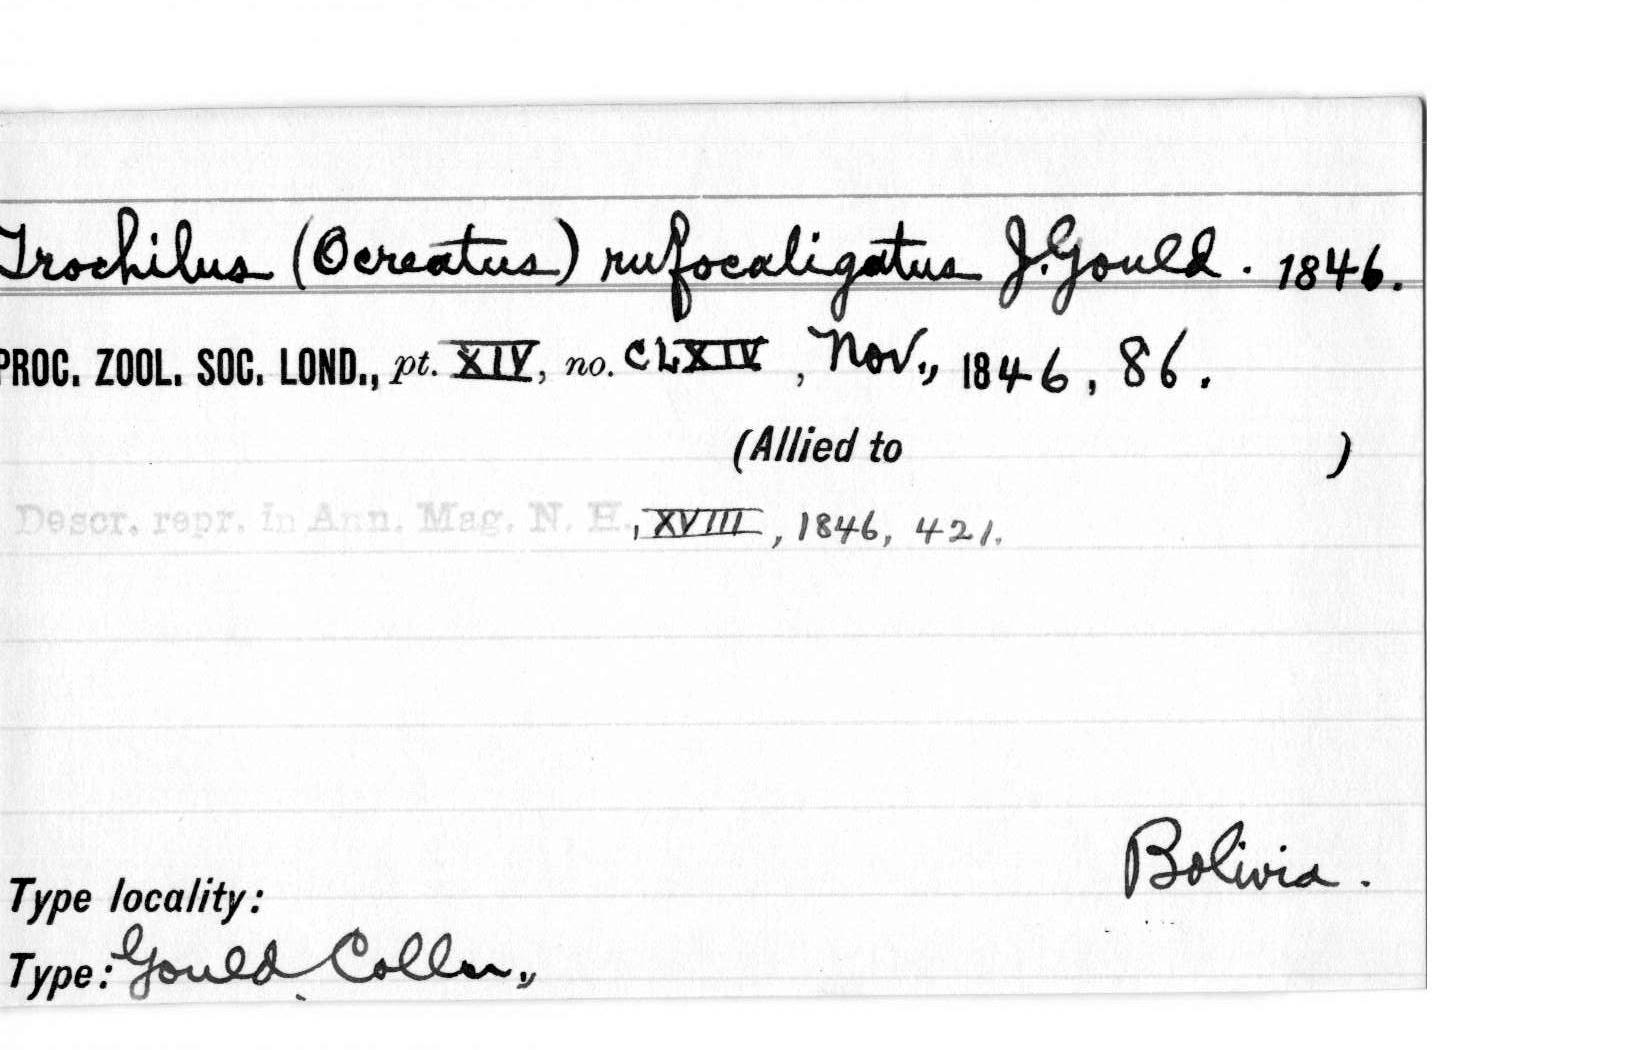 Trochilus (Ocreatus) rufocaligatus J. Gould. 1846.
PROC. ZOOL. SOC. LOND., pt. XIV, no. CLXIV, Nov., 1846, 86.
(Allied to )
Descr. repr. in Ann. Mag. N. H., XVIII, 1846, 421.
Bolivia.
Type locality:
Type: Gould Colln.,